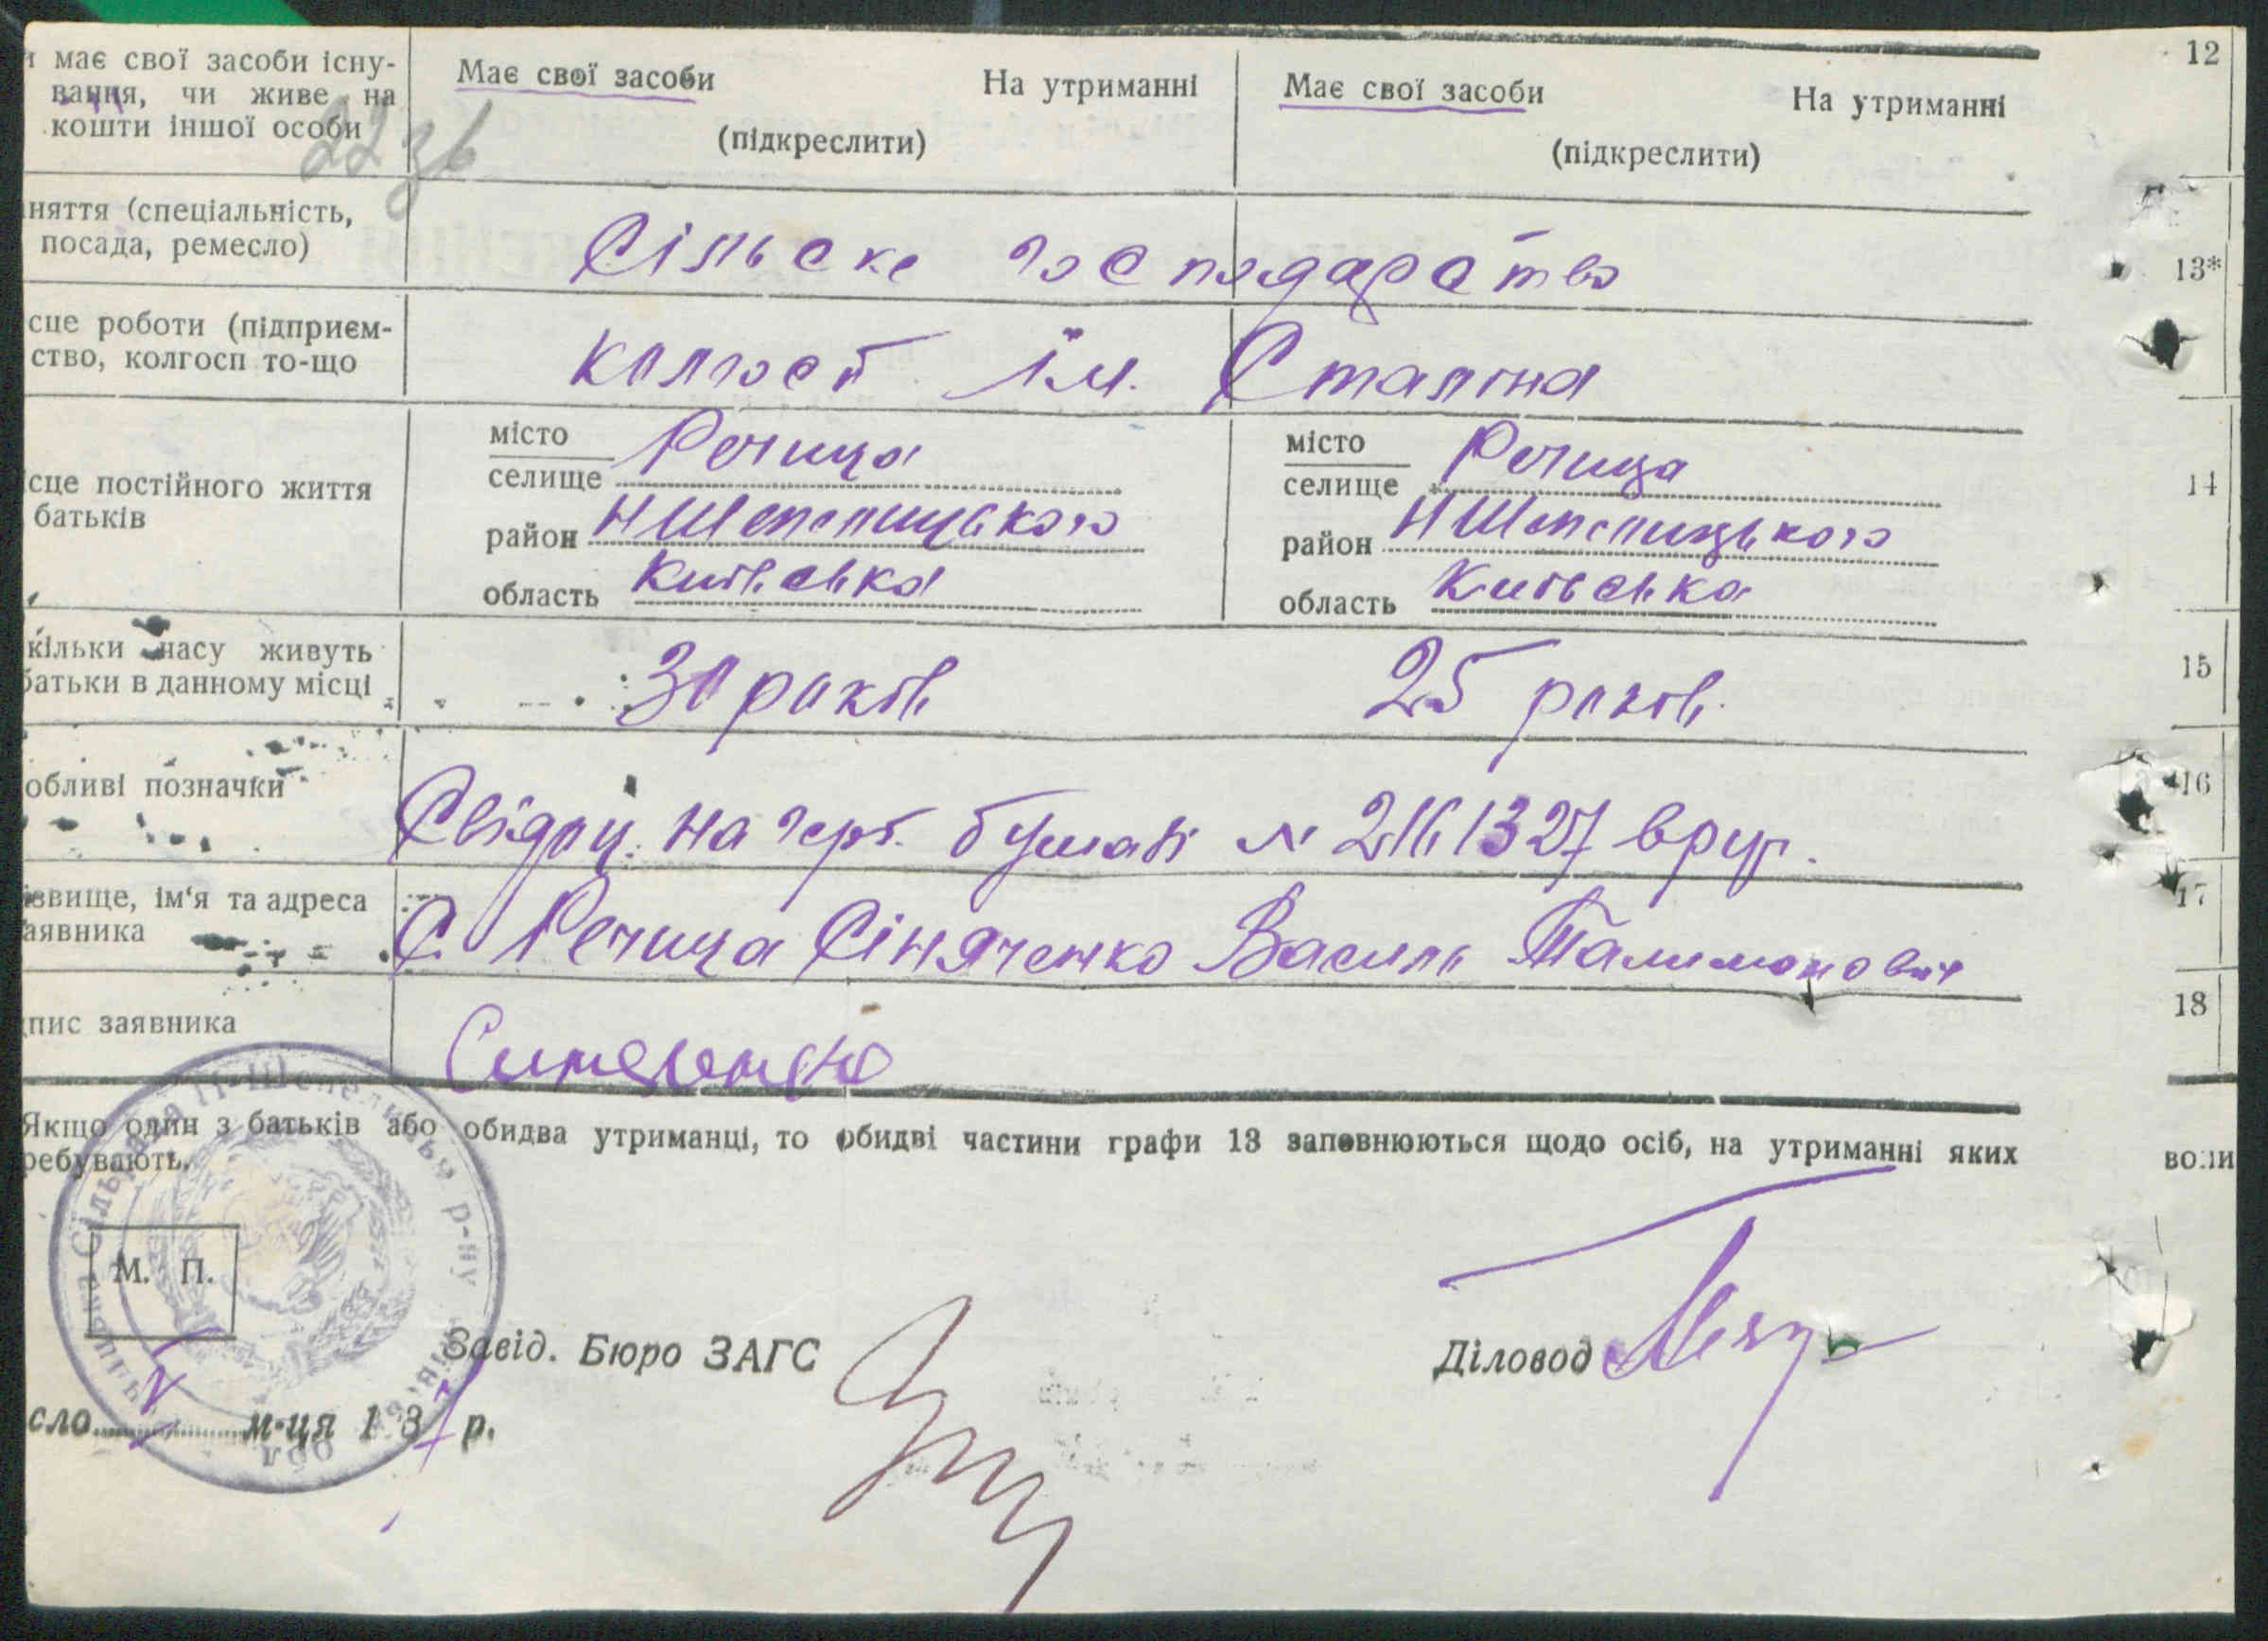 має свої засоби існу-
вання, чи живе на
кошти іншої особи
22 зв
Має свої засоби На утриманні
(підкреслити)
Має свої засоби На утриманні
(підкреслити)
12
няття (спеціальність,
посада, ремесло)
Сільске господарство
13*
сце роботи (підприєм-
ство, колгосп то-що
колгосп ім. Сталіна
сце постійного життя
батьків
місто
селище Речица
район НШепелицького
область Київська
місто
селище Речица
район НШепелицького
область Київська
14
кільки часу живуть
батьки в данному місці
30 років
25 років.
15
обливі позначки
Свідоц. на герб. бумазі № 2161327 вруч.
16
ізвище, ім'я та адреса
аявника
С. Речица Сіняченко Василь Талимонович
17
пис заявника
18
Якщо один з батьків або обидва утриманці, то обидві частини графи 13 заповнюються щодо осіб, на утриманні яких вони
ребувають.
Сільрада Н-Шепелицьк р-ну
обл
М. П.
Завід. Бюро ЗАГС
Діловод
сло м-ця 137 р.